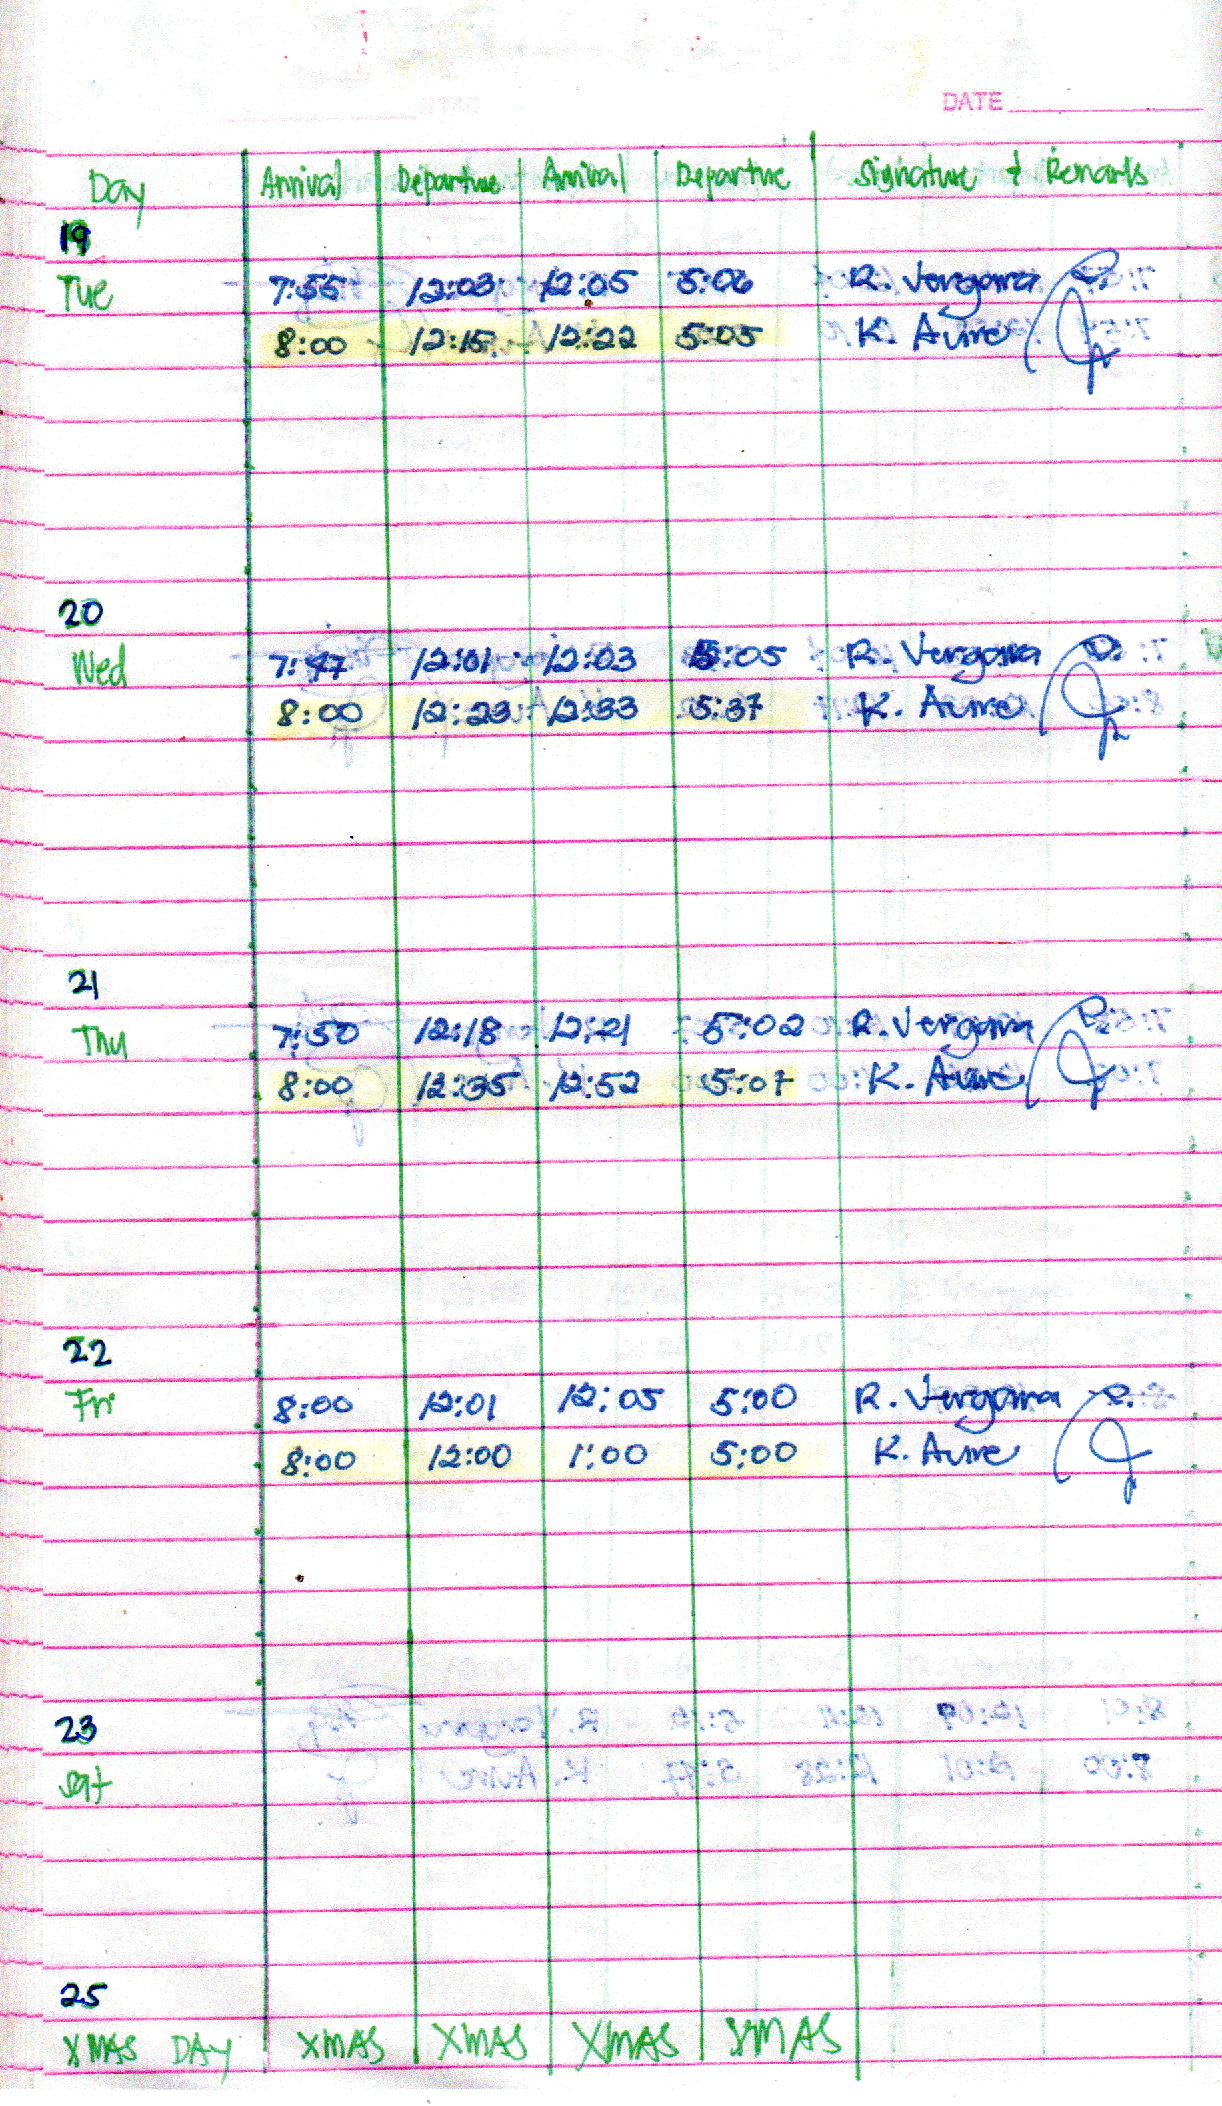 DATE
Day Arrival Departure Arrival Departure Signature & Remarks
19
Tue 7:55 12:03 12:05 5:06 R. Vergara
8:00 12:15 12:22 5:05 K. Aure
20
Wed 7:47 12:01 12:03 5:05 R. Vergara
8:00 12:23 12:33 5:37 K. Aure
21
Thu 7:50 12:18 12:21 5:02 R. Vergara
8:00 12:35 12:52 5:07 K. Aure
22
Fri 8:00 12:01 12:05 5:00 R. Vergara
8:00 12:00 1:00 5:00 K. Aure
23
Sat
25
XMAS DAY XMAS XMAS XMAS XMAS